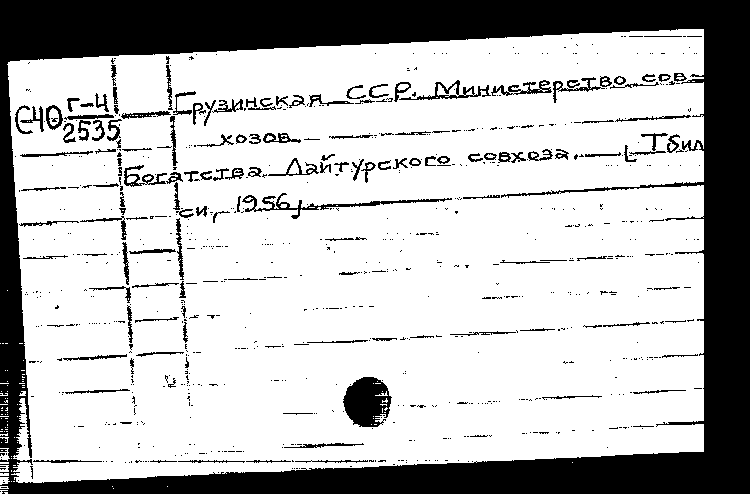 С40 Г-4
2535
Грузинская ССР. Министерство сов-
хозов.
Богатства Лайтурского совхоза. — [Тбили
си, 1956].